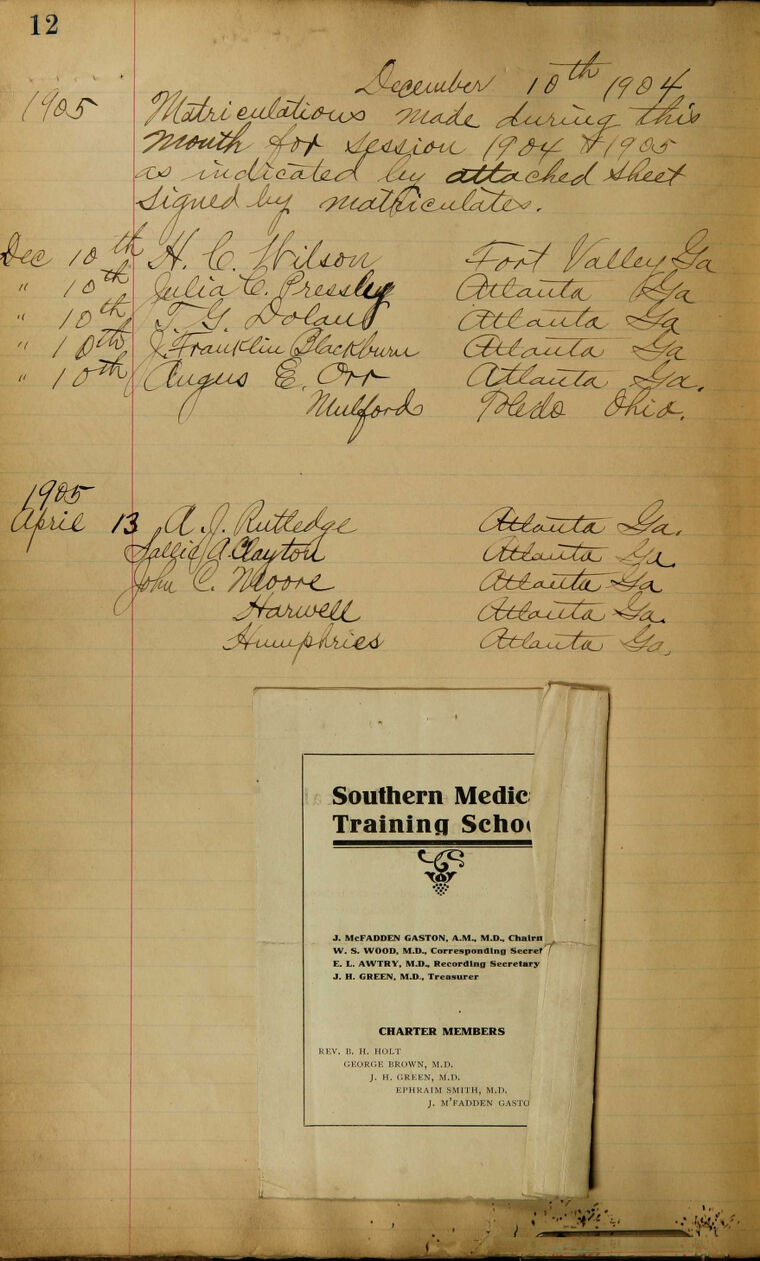 12
December 10th 1904
1905 Matriculations made during this
month for session 1904 & 1905
as indicated by attached sheet
signed by matriculates.
Dec 10th H. C. Wilson Fort Valley Ga
" 10th Julia C. Pressley Atlanta Ga
" 10th T. G. Dolan Atlanta Ga
" 10th J. Franklin Blackburn Atlanta Ga
" 10th Angus E. Orr Atlanta Ga.
Mulford Toledo Ohio.
1905
April 13 A. J. Rutledge Atlanta Ga.
Sallie A. Clayton Atlanta Ga.
John C. Moore Atlanta Ga
Harwell Atlanta Ga.
Humphries Atlanta Ga.
Southern Medic
Training Schoo
J. McFADDEN GASTON, A.M., M.D., Chairm
W. S. WOOD, M.D., Corresponding Secret
E. L. AWTRY, M.D., Recording Secretary
J. H. GREEN, M.D., Treasurer
CHARTER MEMBERS
REV. B. H. HOLT
GEORGE BROWN, M.D.
J. H. GREEN, M.D.
EPHRAIM SMITH, M.D.
J. M'FADDEN GASTO